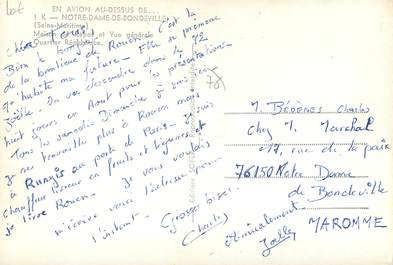 lot
EN AVION AU-DESSUS DE...
1 K — NOTRE-DAME-DE-BONDEVILLE
(Seine-Maritime)
et Vue générale
Quartier Résidence
Chère
Bien le bonjour de Rouen. C'est là
de la banlieue de Rouen
qu'habite ma future. Elle se prénomme
Joëlle. On va descendre dans le 12
huit jours en Aout pour les présentations.
Tous les samedis Dimanche je suis ici
je ne travaille plus à Rouen mais
à Rungis au porte de Paris. Je suis
chauffeur livreur en fruits et légumes et
je livre Rouen. Si vous voulais
m'écrire voici l'adresse pour
l'instant.
Grosses bises.
Charles
M. BÉDÈNES Charles
chez M. Marchal
rue de la paix
76150 Notre Dame
de Bondeville
MAROMME
Amicalement
Joëlle